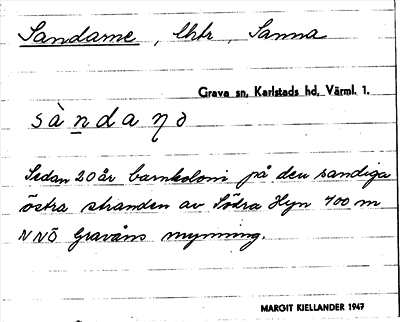 Sandarne, lhtr, Sanna
Grava sn, Karlstads hd, Värml. 1.
sàndaŋə
Sedan 20 år barnkoloni på den sandiga
östra stranden av Södra Hyn 400 m
NNÖ Gravåns mynning.
MARGIT KIELLANDER 1947